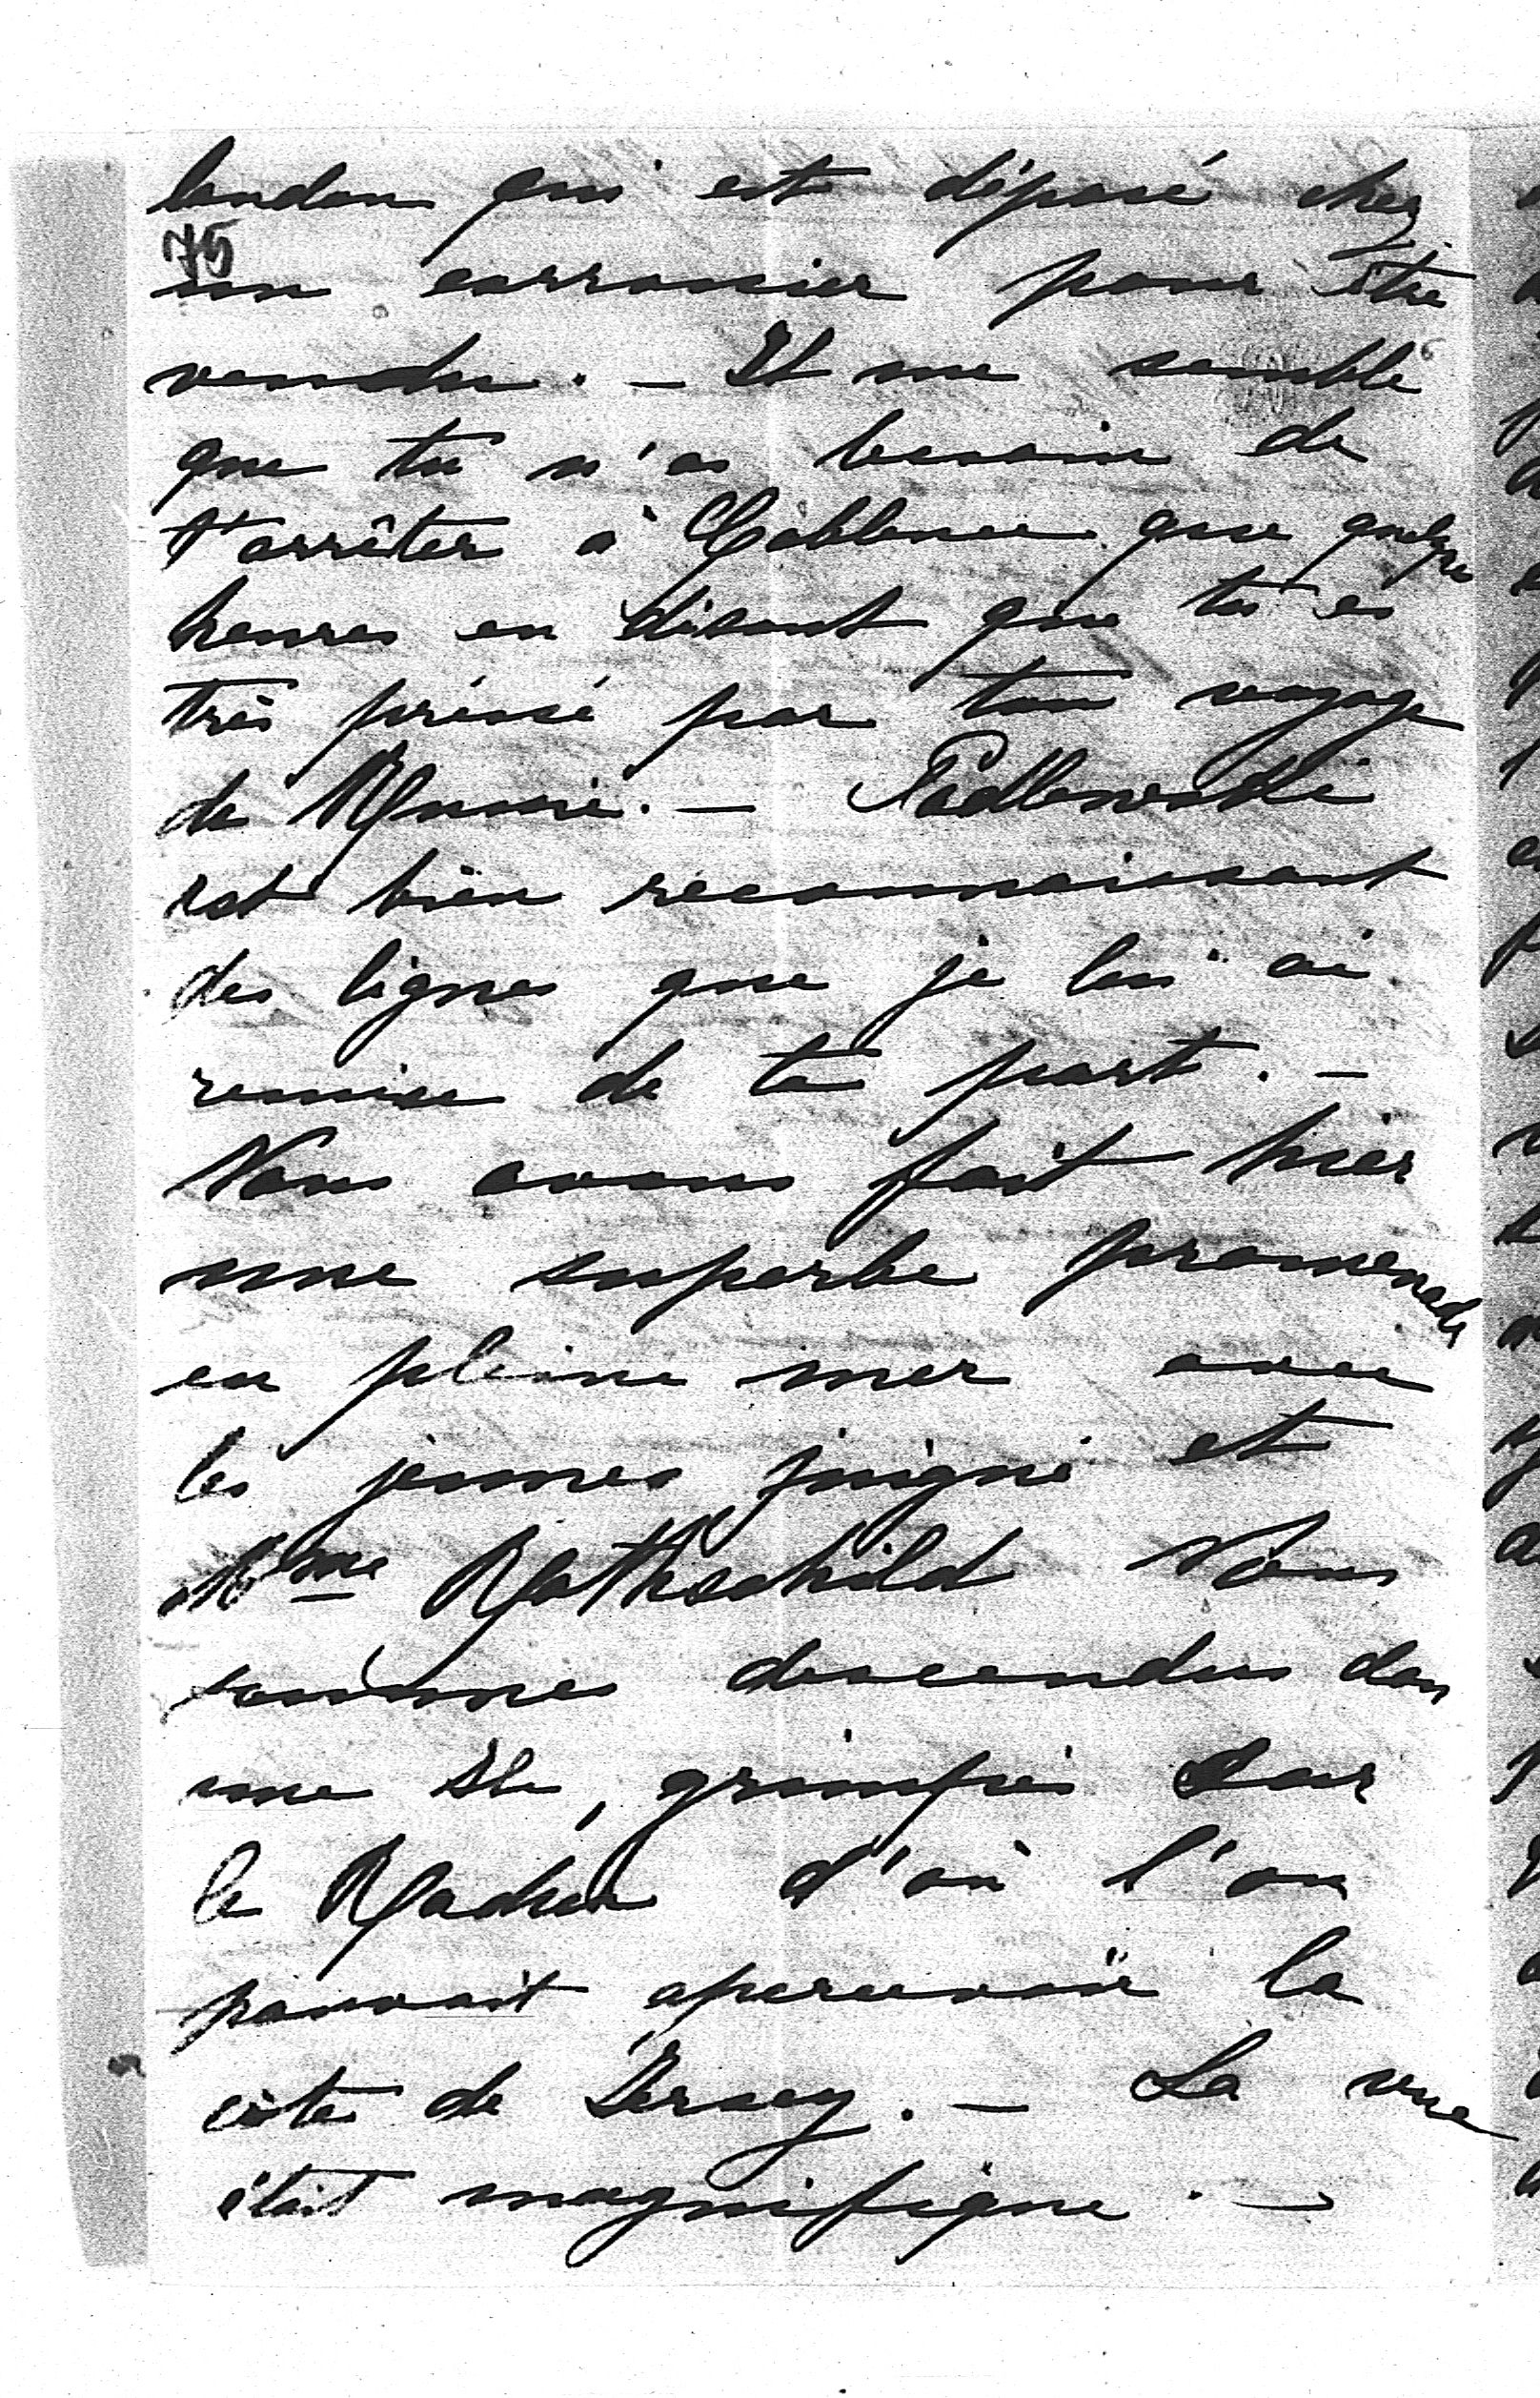 landau qui est déposé chez
75
un carrossier pour être
vendu. - Il me semble
que tu n'as besoin de
t'arrêter à Coblence que quelques
heures en disant que tu es
très pressé par ton voyage
de Russie. - Padlewski
est bien reconnaissant
des lignes que je lui ai
remises de ta part. -
Nous avons fait hier
une superbe promenade
en pleine mer avec
les jeunes Juigné et
Mme Rothschild Nous
sommes descendus dans
une Ile, grimpés sur
le Rocher d'où l'on
pouvait apercevoir la
côte de Jersey. - La vue
était magnifique. -